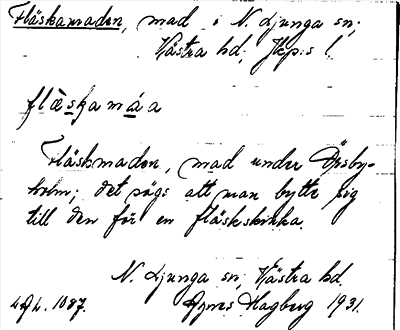 Fläskamaden, mad i N. Ljunga sn;
Västra hd; Jkp:s l.
flæskamáa
Fläskmaden, mad under Örsby-
holm; det säges att man bytte sig
till den för en fläskskinka.
N. Ljunga sn; Västra hd.
Agnes Hagberg 1931.